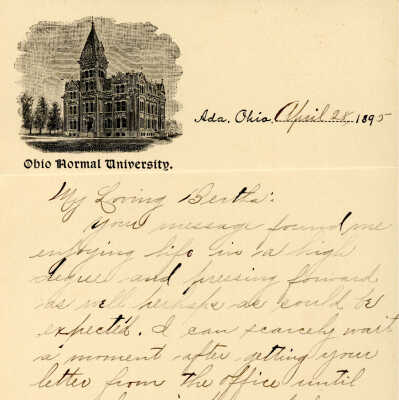 Ohio Normal University.
Ada, Ohio, April 28, 1895
My Loving Bertha:
Your message found me
enjoying life in a high
degree and pressing forward
as well perhaps as could be
expected. I can scarcely wait
a moment after getting your
letter from the office until